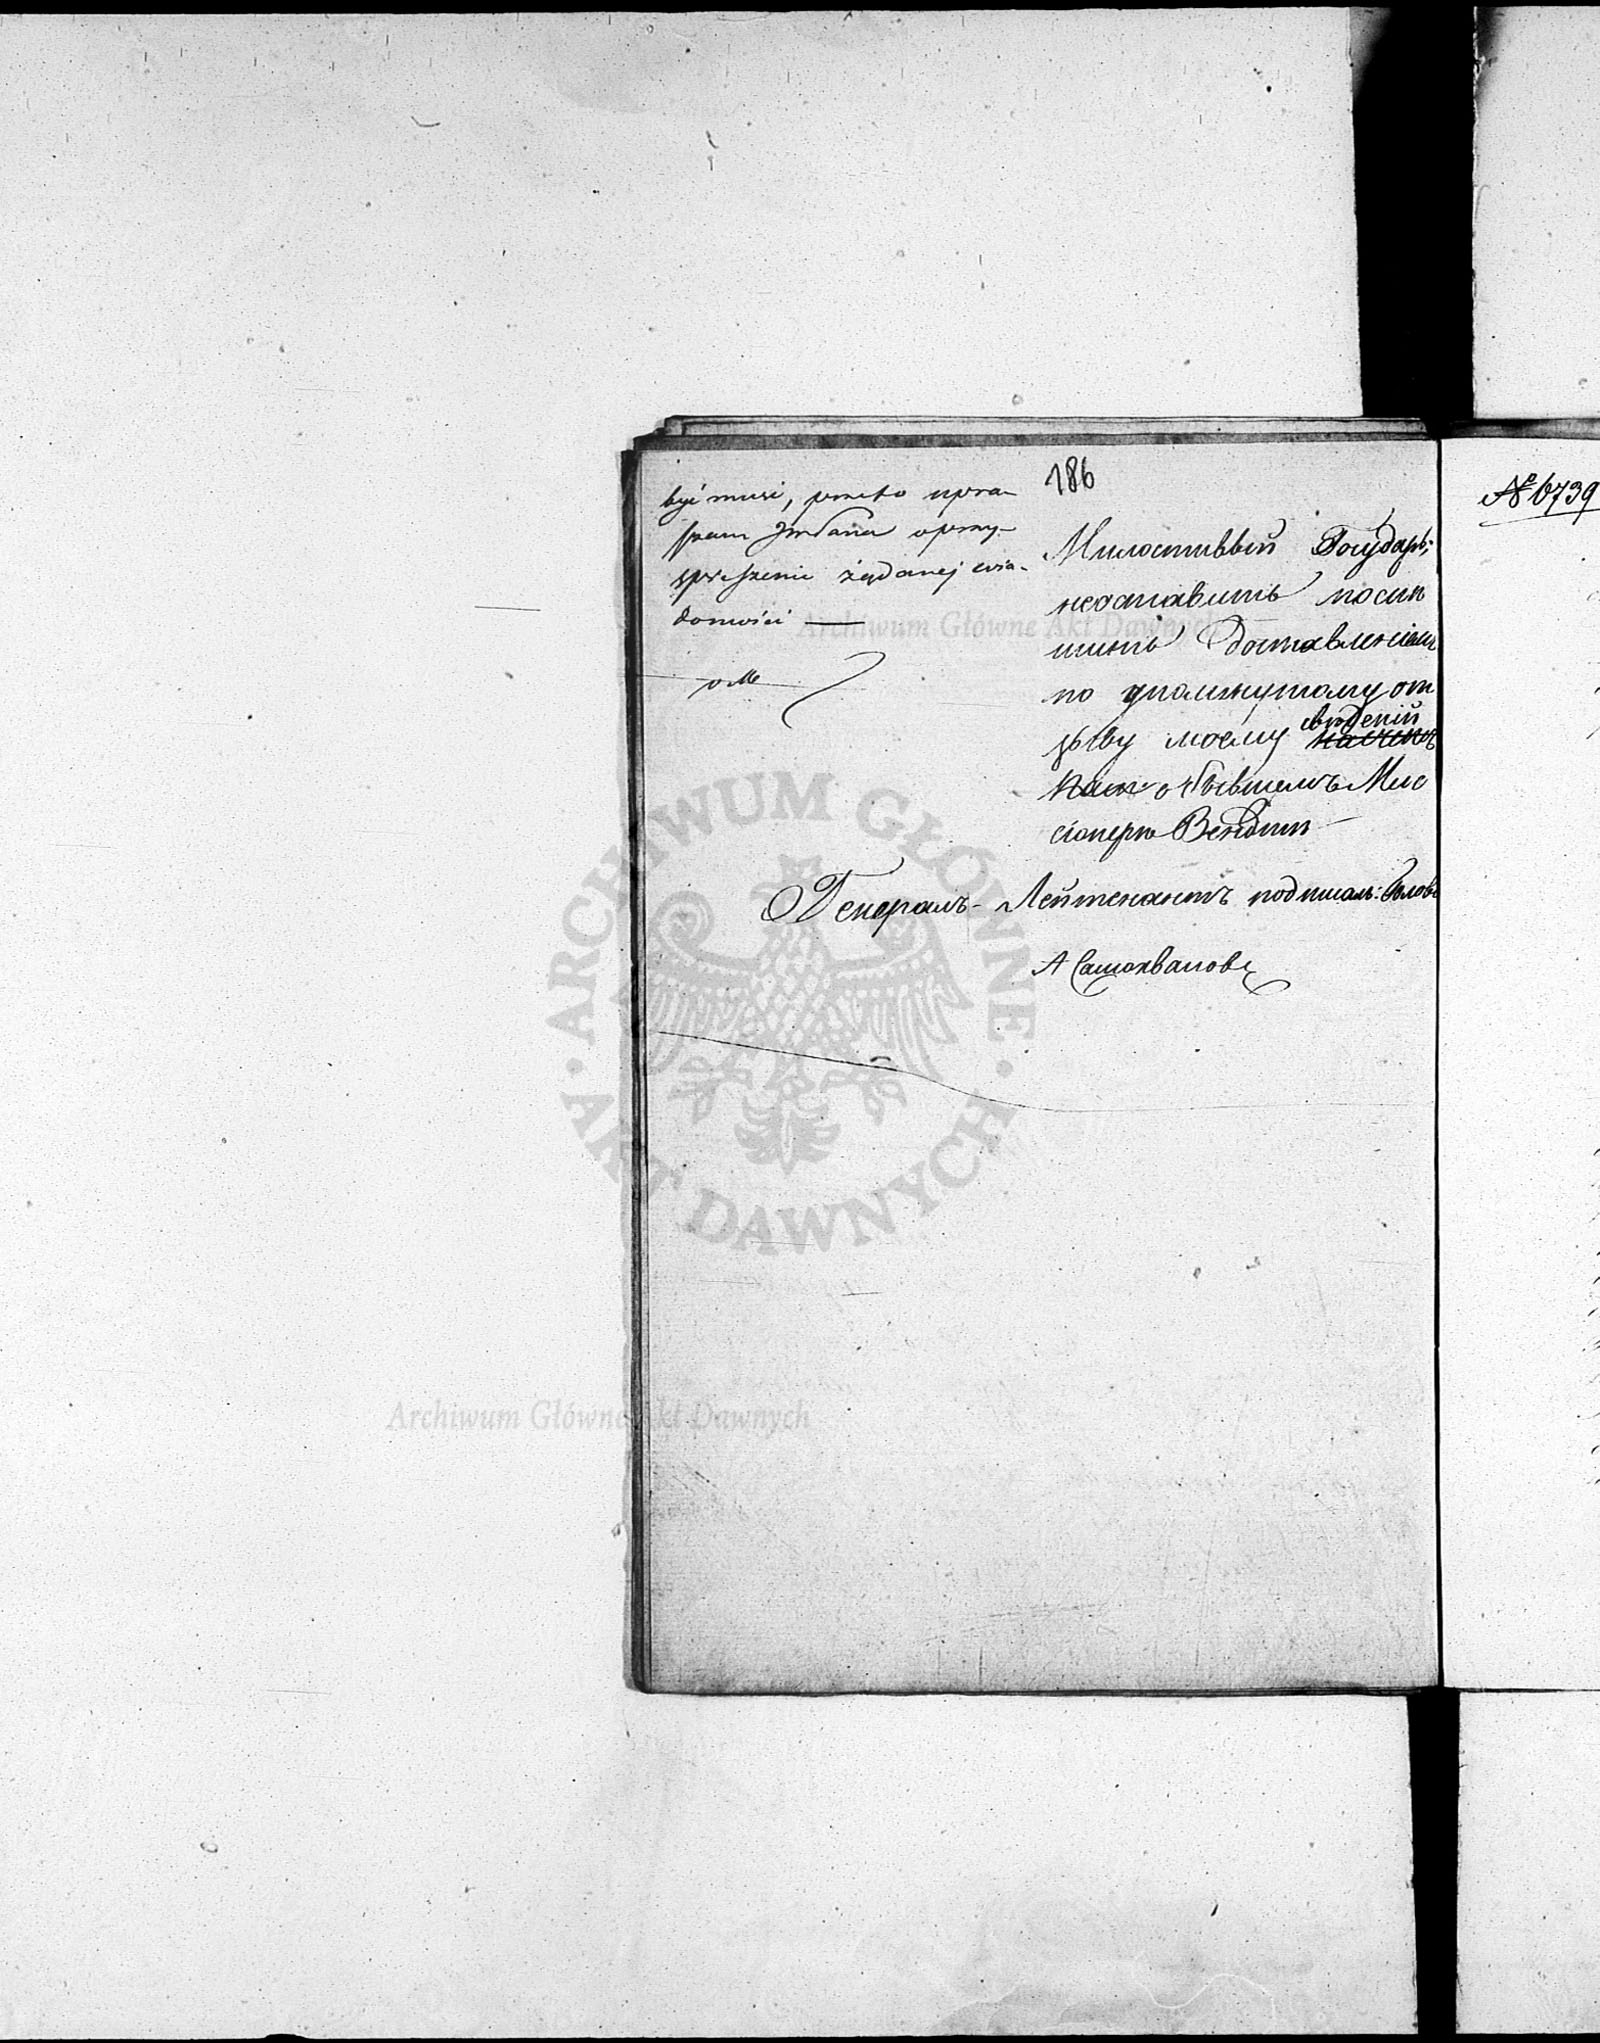 186
być musi, przeto upra-
szam JmPana o przy-
spieszenie żądanej wia-
domości —
Милостивый Государь,
неоставить поспѣ
шить доставленіемъ
по упомянутому от
зыву моему свѣдений
о бывшемъ Мис
сіонерѣ Вендтъ
Генералъ-Лейтенантъ подписалъ: Голов
А Самохваловъ
№ 6739
Archiwum Główne Akt Dawnych
ARCHIWUM GŁÓWNE · AKT DAWNYCH ·
Archiwum Główne Akt Dawnych